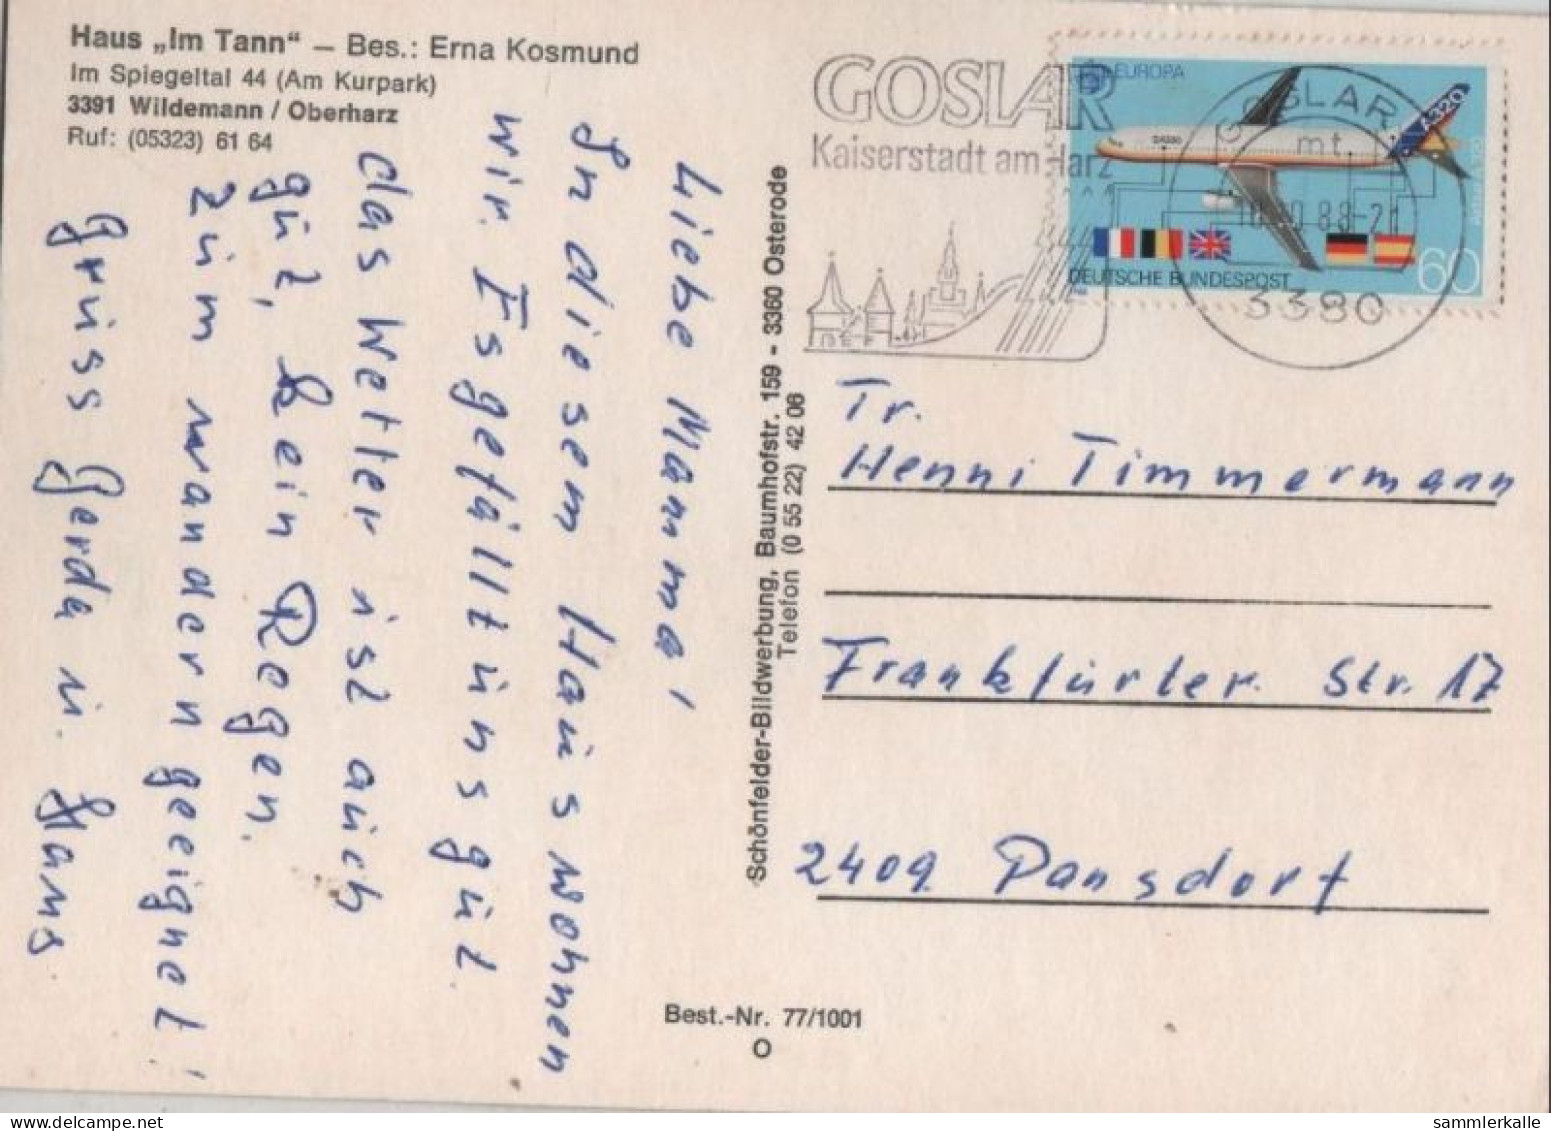 Haus „Im Tann“ – Bes.: Erna Kosmund
Im Spiegeltal 44 (Am Kurpark)
3391 Wildemann / Oberharz
Ruf: (05323) 61 64
Liebe Mamma!
In diesem Haus wohnen
wir. Es gefällt uns gut.
das Wetter ist auch
gut, kein Regen.
zum wandern geeignet!
Gruss Gerda u. Hans
Schönfelder-Bildwerbung, Baumhofstr. 159 - 3360 Osterode
Telefon (0 55 22) 42 06
Best.-Nr. 77/1001
O
GOSLAR
Kaiserstadt am Harz
EUROPA
A320
DEUTSCHE BUNDESPOST
60
GOSLAR
mt
88-21
3380
Fr.
Henni Timmermann
Frankfurter Str. 17
2409 Pansdorf
sammlerkalle